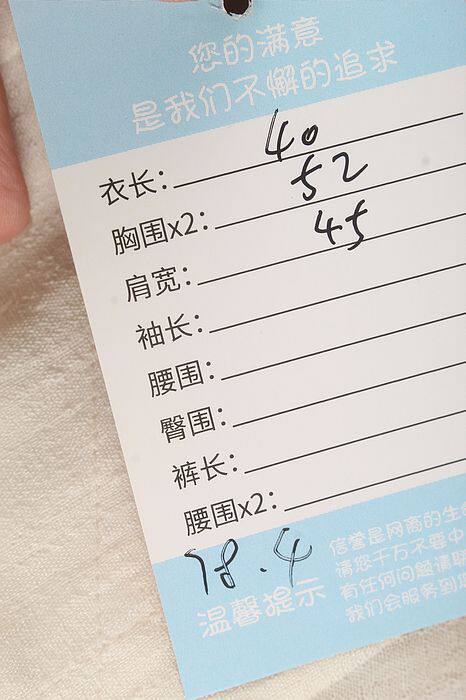 您的满意
是我们不懈的追求
衣长: 40
胸围x2: 52
肩宽: 45
袖长:
腰围:
臀围:
裤长:
腰围x2:
78.4
温馨提示
信誉是网商的生
请您千万不要中
有任何问题请
我们会服务到